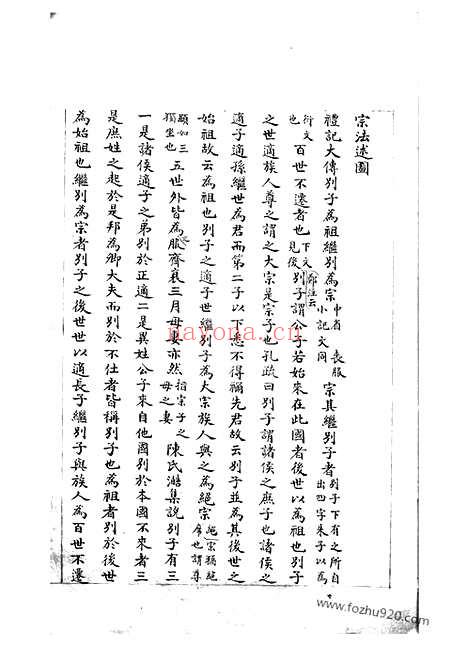 宗法述圖
禮記大傳別子為祖繼別為宗中省 喪服小記文同宗其繼別子者別子下有之所自出四字朱子以為
衍文也百世不遷者也下文見後鄭注云別子謂公子若始來在此國者後世以為祖也別子
之世適族人尊之謂之大宗是宗子也孔疏曰別子謂諸侯之庶子也諸侯之
適子適孫繼世為君而第二子以下悉不得禰先君故云別子並為其後世之
始祖故云為祖也別子之適子世繼別子為大宗族人與之為絕宗
五世外皆為服齊衰三月母妻亦然指宗子之母之妻陳氏澔集說別子有三
一是諸侯適子之弟別於正適二是異姓公子來自他國別於本國不來者三
是庶姓之起於是邦為卿大夫而別於不仕者皆稱別子也為祖者別於後世
為始祖也繼別為宗者別子之後世世以適長子繼別子與族人為百世不遷
nayona.cn
www.fozhu920.com